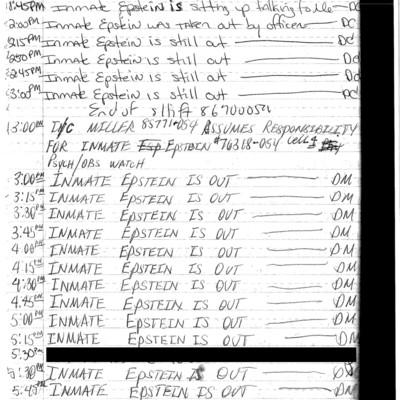 1:45PM Inmate Epstein is sitting up talking to Me — DC
2:00PM Inmate Epstein was taken out by officer — DC
2:15PM Inmate Epstein is still out — DC
Inmate Epstein is still out — DC
2:45PM Inmate Epstein is still out — DC
3:00PM Inmate Epstein is still out — DC
End of shift
13:00 I/C MILLER 85771-054 ASSUMES RESPONSIBILITY
FOR INMATE EPSTEIN #76318-054 CELL 4
PSYCH/OBS WATCH
3:00PM INMATE EPSTEIN IS OUT — DM
3:15PM INMATE EPSTEIN IS OUT — DM
3:30PM INMATE EPSTEIN IS OUT — DM
3:45PM INMATE EPSTEIN IS OUT — DM
4:00PM INMATE EPSTEIN IS OUT — DM
4:15PM INMATE EPSTEIN IS OUT — DM
4:30PM INMATE EPSTEIN IS OUT — DM
4:45PM INMATE EPSTEIN IS OUT — DM
5:00PM INMATE EPSTEIN IS OUT — DM
5:15PM INMATE EPSTEIN IS OUT — DM
5:30PM
5:30PM INMATE EPSTEIN IS OUT — DM
5:45PM INMATE EPSTEIN IS OUT — DM